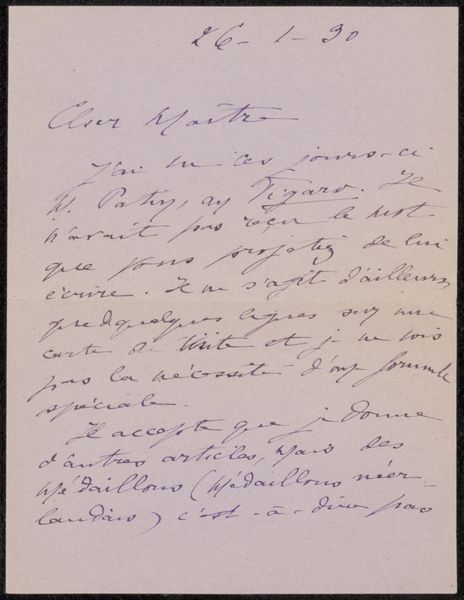 26 - 1 - 90
Cher Maître
J'ai vu ces jours-ci
M. Patry, au Figaro. Il
n'avait pas reçu le mot
que vous projetiez de lui
écrire. Il ne s'agit d'ailleurs
que de quelques lignes sur une
carte de visite et je ne vois
pas la nécessité d'une formule
spéciale.
Il accepte que je donne
d'autres articles, mais des
Médaillons (Médaillons néer-
landais) c'est-à-dire pas